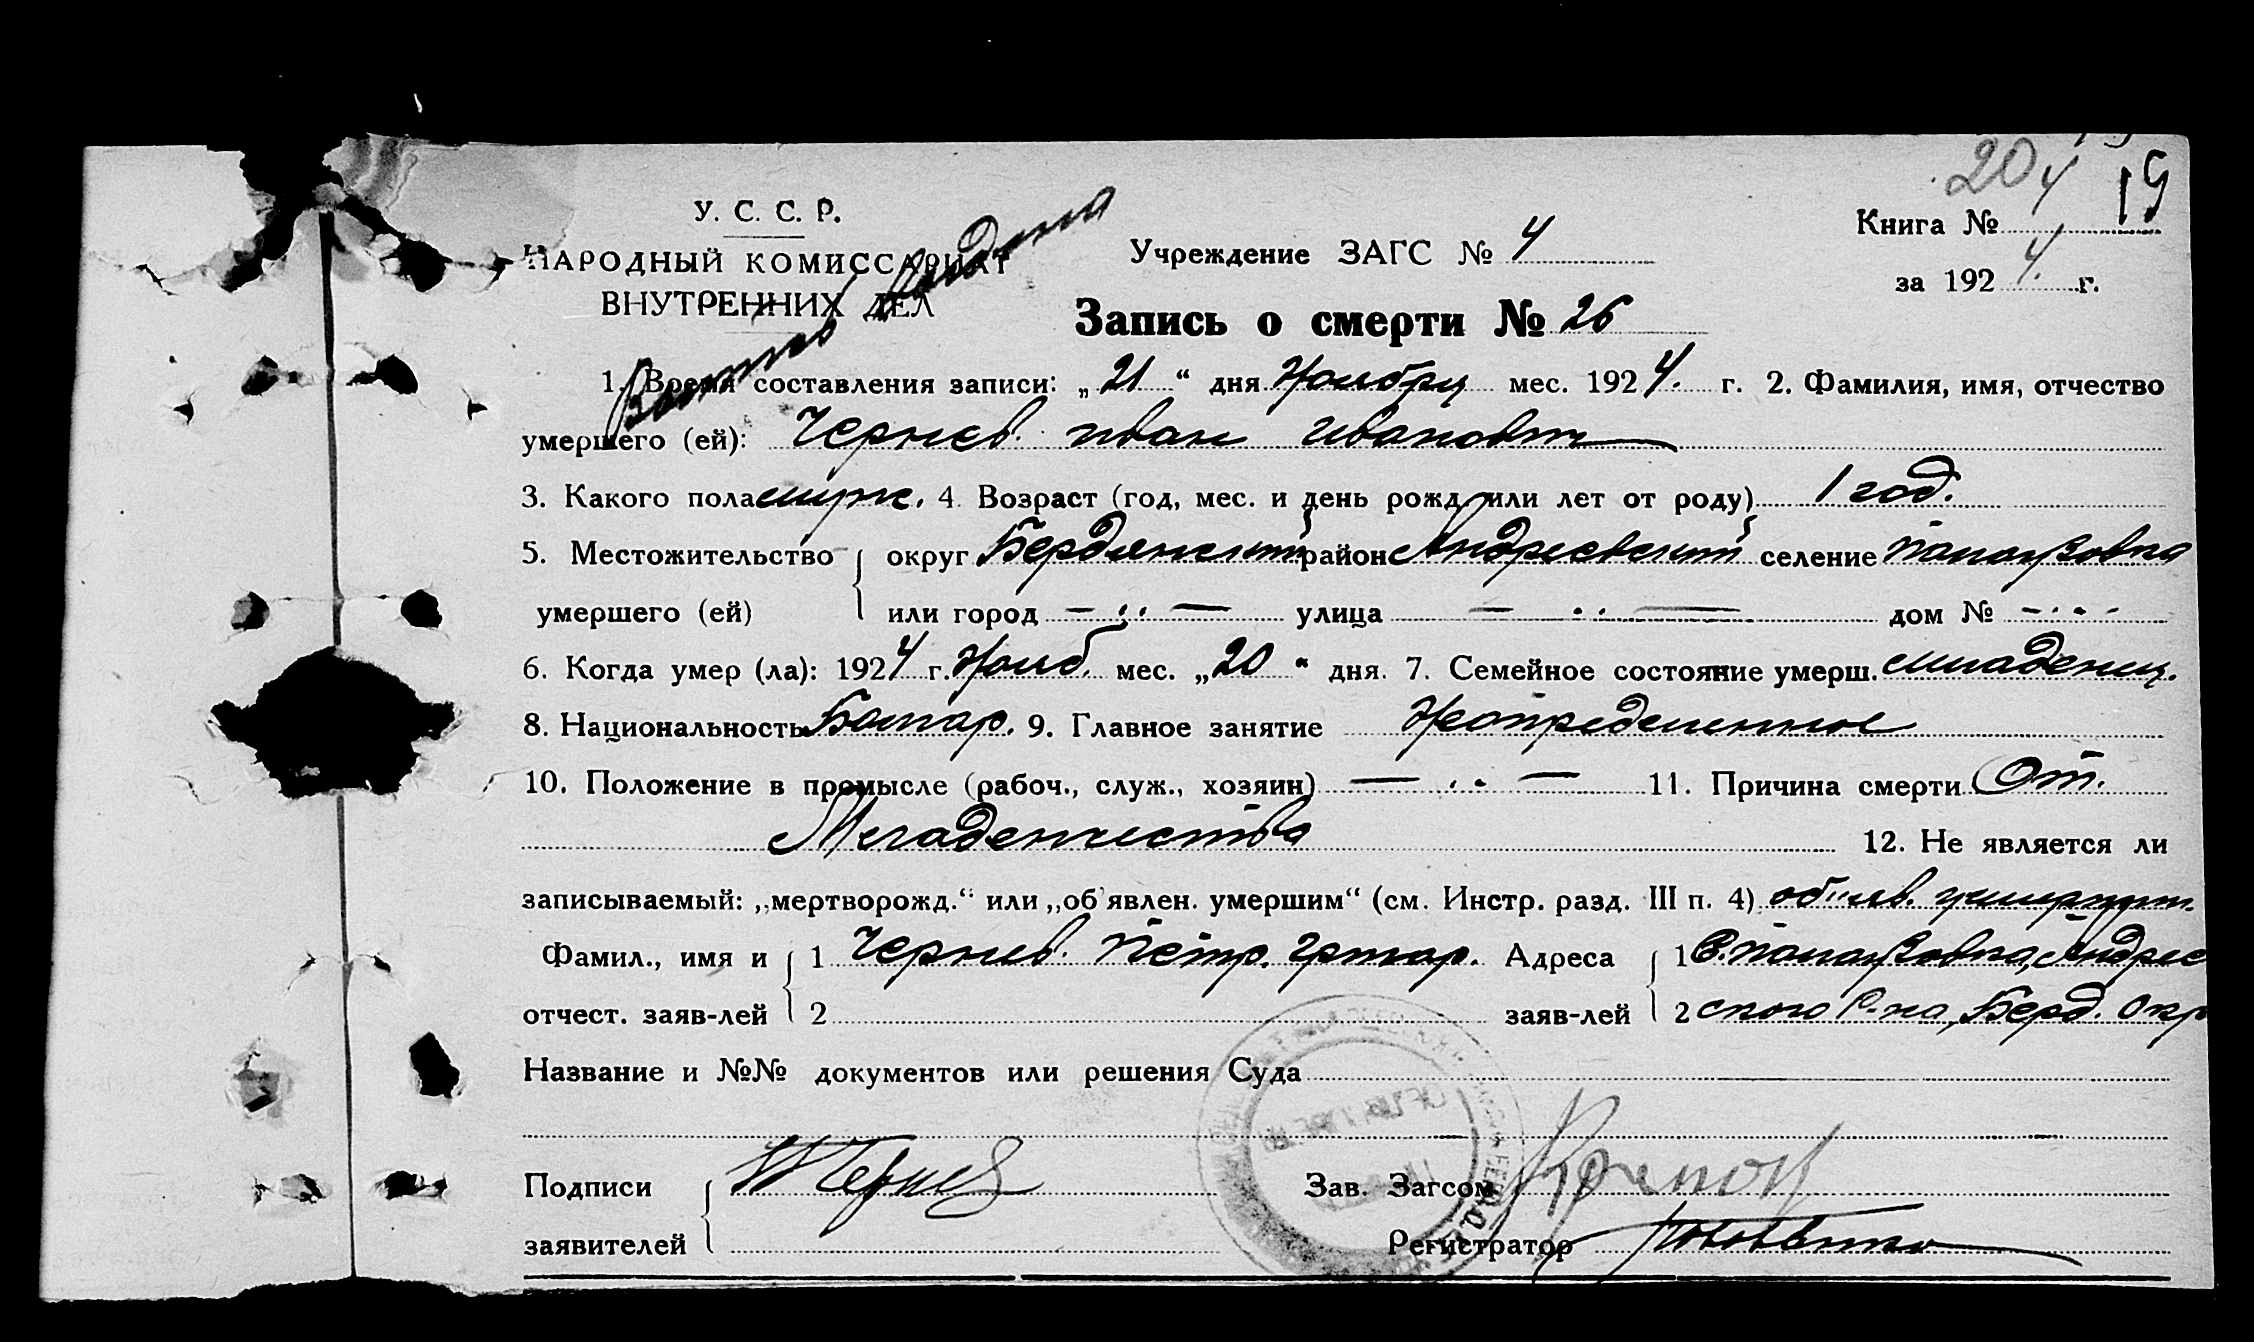 204 19
У. С. С. Р.
НАРОДНЫЙ КОМИССАРИАТ
ВНУТРЕННИХ ДЕЛ
Учреждение ЗАГС № 4
Книга №
за 1924 г.
Запись о смерти № 26
1. Время составления записи: „21“ дня Ноября мес. 1924. г. 2. Фамилия, имя, отчество
умершего (ей): Чернев Иван Иванович
3. Какого пола мужс. 4. Возраст (год, мес. и день рожд. или лет от роду) 1 год.
5. Местожительство округ Бердянский район Андреевский селение
умершего (ей) или город — ·· — улица — ·· — дом № — ·· -
6. Когда умер (ла): 1924 г. Нояб. мес. „20“ дня. 7. Семейное состояние умерш. младенец.
8. Национальность Болгар. 9. Главное занятие Неопределенное
10. Положение в промысле (рабоч., служ., хозяин) — ·· — 11. Причина смерти От.
Младенчества 12. Не является ли
записываемый: „мертворожд.“ или „об'явлен. умершим“ (см. Инстр. разд. III п. 4) об'яв. умершим.
Фамил., имя и 1 Чернев Петр. Адреса 1 Андреев
отчест. заяв-лей 2 заяв-лей 2 ского Р-на, Берд. Окр
Название и №№ документов или решения Суда
Подписи Чернев Зав. Загсом
заявителей Регистратор